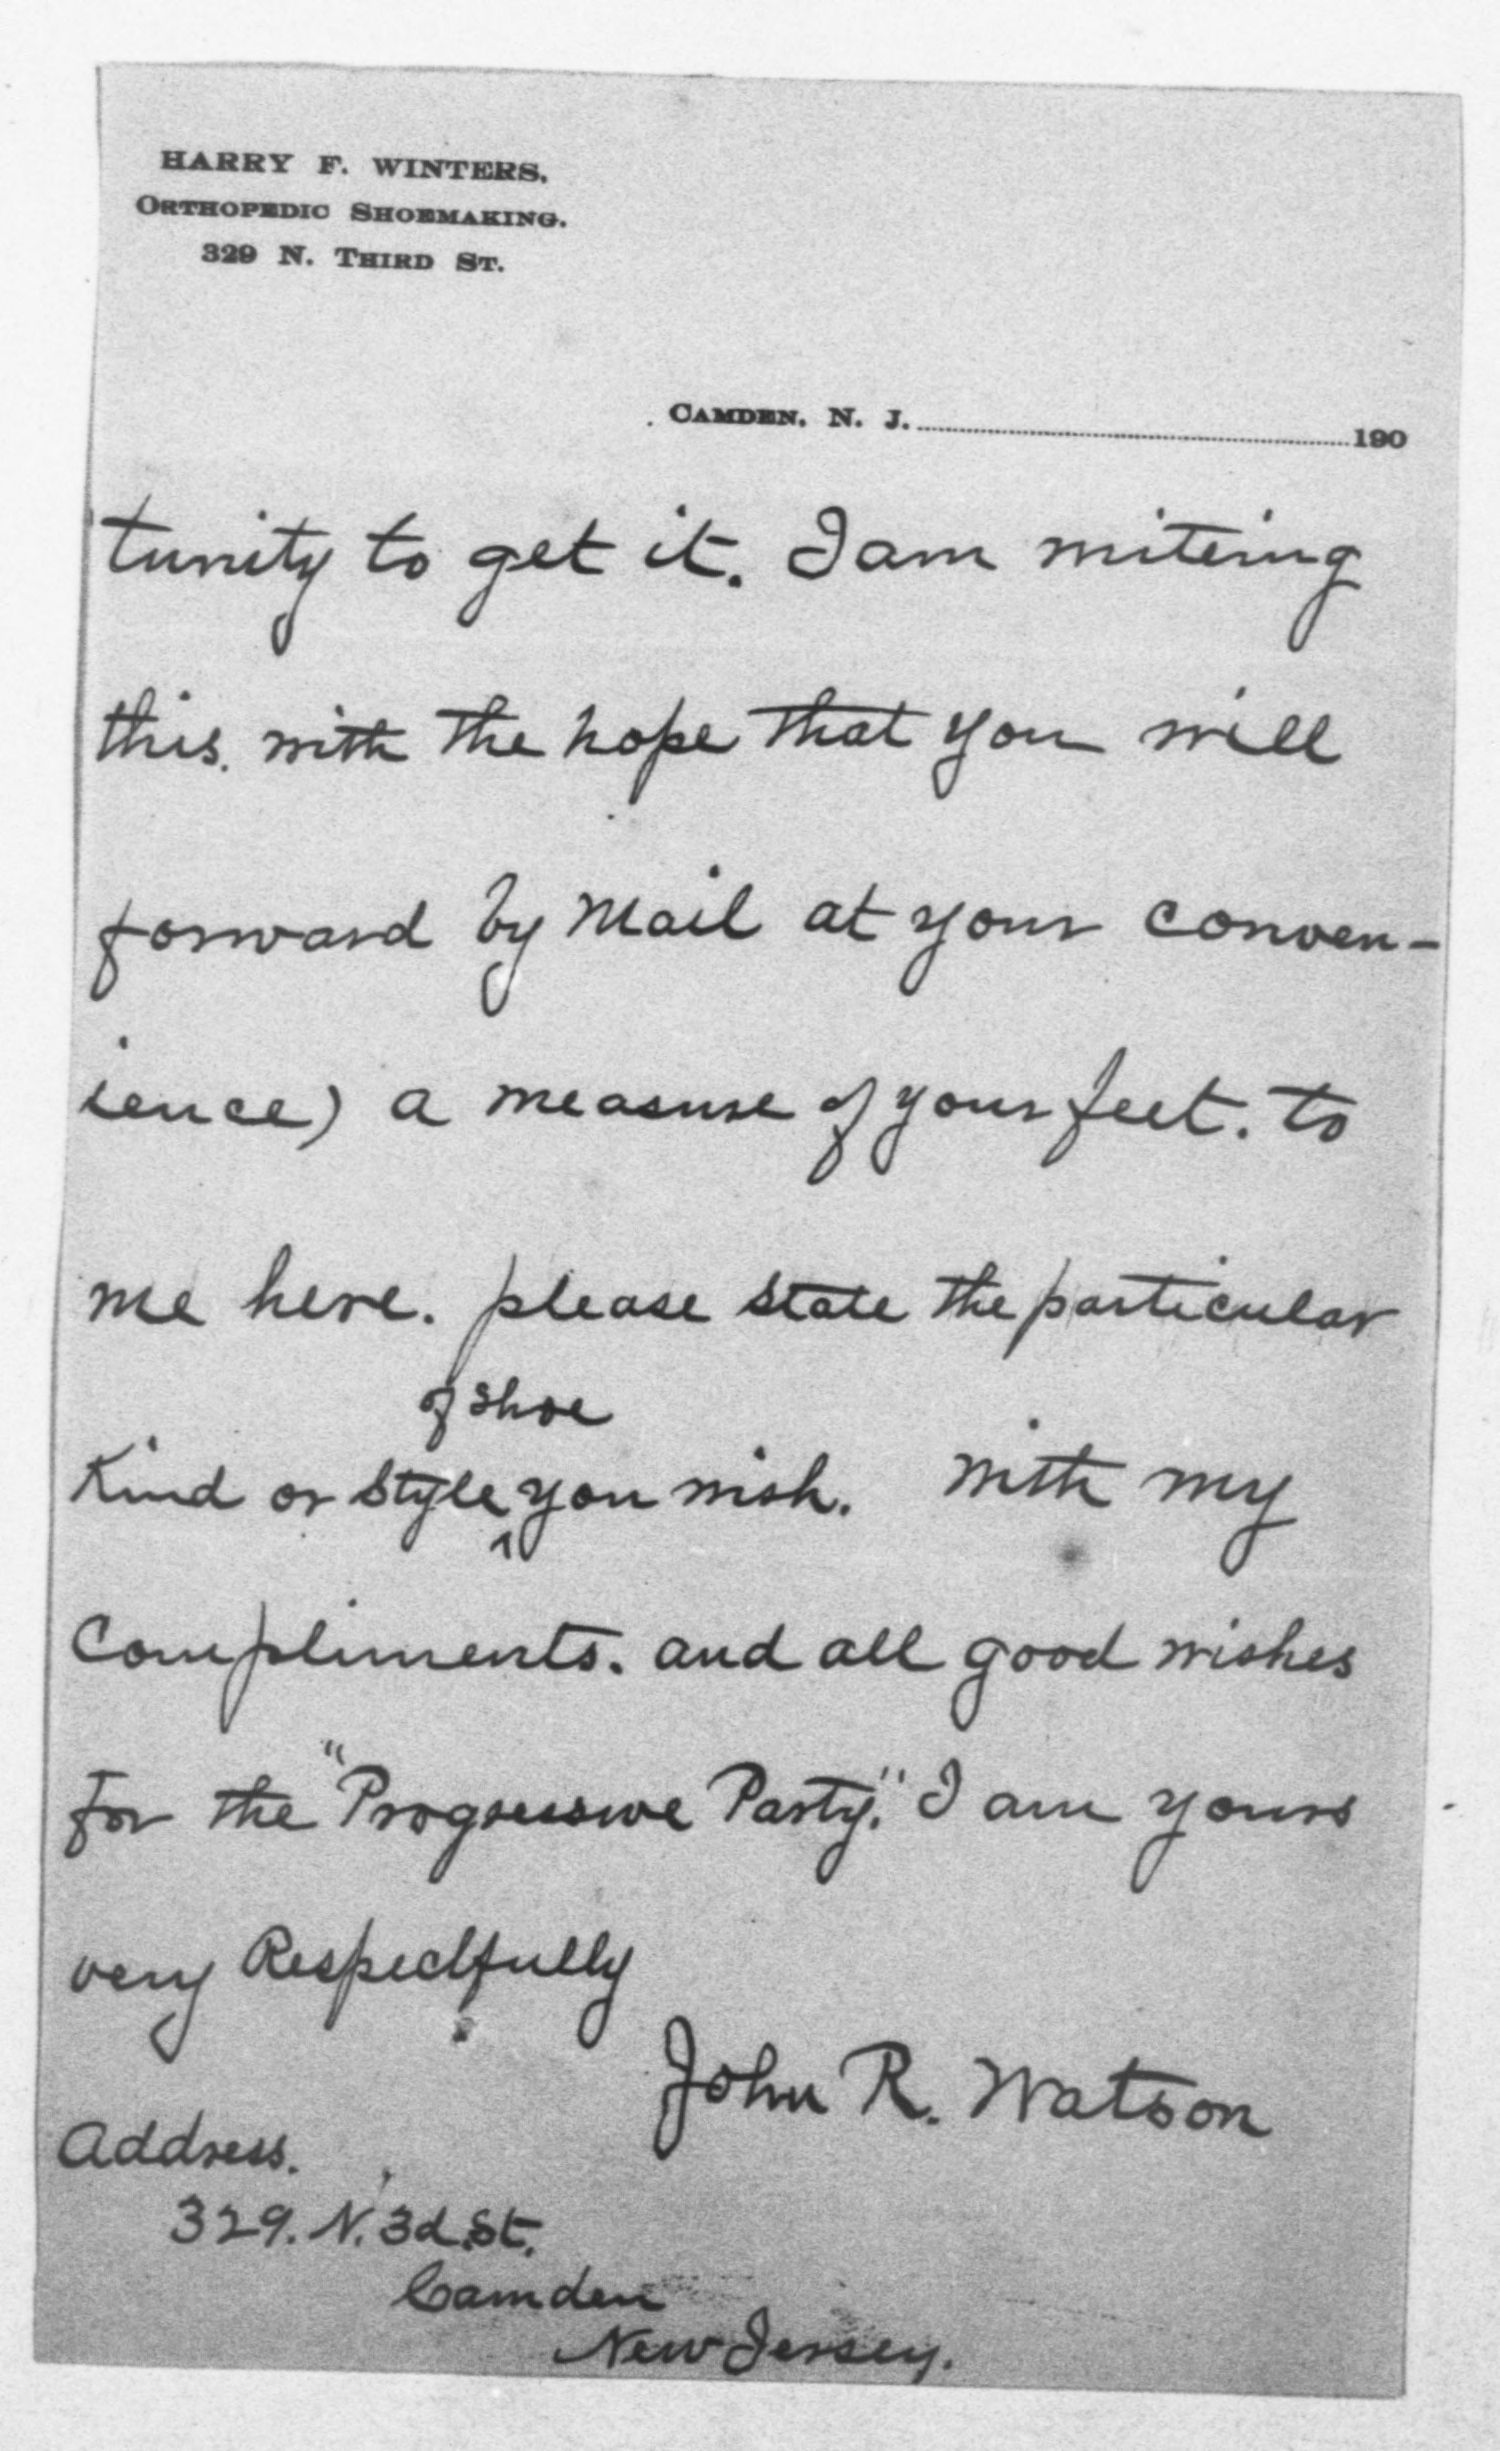 HARRY F. WINTERS.
ORTHOPEDIC SHOEMAKING.
329 N. THIRD ST.
CAMDEN, N. J. 190
tunity to get it. I am writeing
this. with the hope that you will
forward by Mail at your conven-
ience) a measure of your feet. to
me here. please state the particular
of shoe
Kind or style ^ you wish. with my
Compliments. and all good wishes
for the "Progressive Party." I am yours
very Respectfully
John R. Watson
Address.
329. N. 3d. St.
Camden
New Jersey.